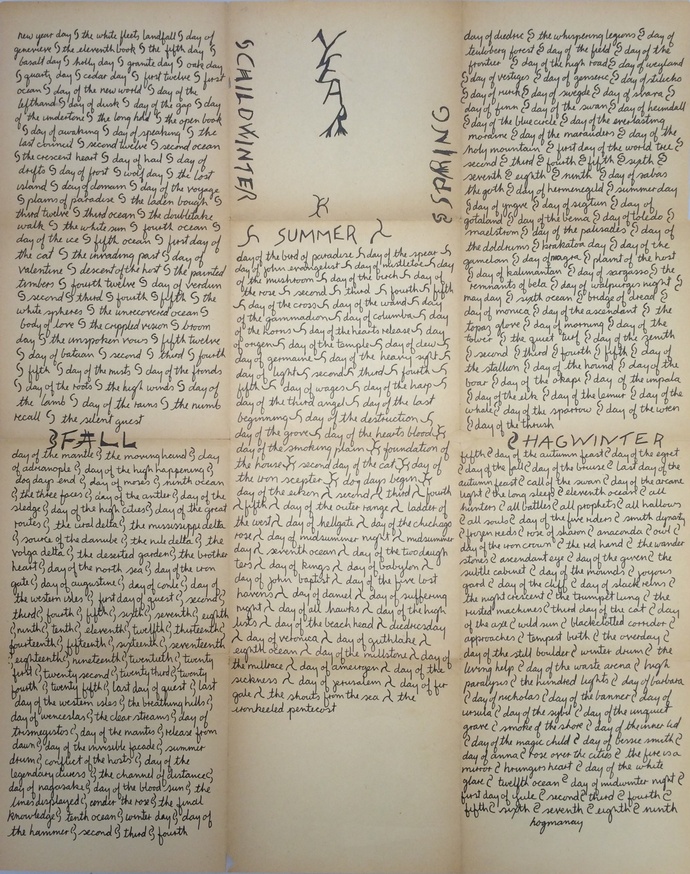 YEAR
SCHILDWINTER
new year day the white fleets landfall day of
genevieve the eleventh book the fifth day
basalt day holly day granite day oak day
quartz day cedar day first twelve first
ocean day of the new world day of the
lefthand day of dusk day of the gap day
of the undertone the long hold the open book
day of awaking day of speaking the
last council second twelve second ocean
the crescent heart day of hail day of
drifts day of frost wolf day the lost
island day of domain day of the voyage
plains of paradise the laden bough
third twelve third ocean the doubletake
walk the white sun fourth ocean day
of the ice fifth ocean first day of
the cat the invading past day of
valentine descent of the host the painted
timbers fourth twelve day of verdun
second third fourth fifth the
white spheres the unrecovered ocean
body of love the crippled vision broom
day the unspoken vows fifth twelve
day of bataan second third fourth
fifth day of the mists day of the fronds
day of the roots the high winds day of
the lamb day of the rains the numb
recall the silent guest
SPRING
day of diedric the whispering legions day of
teutoberg forest day of the field day of the
frontier day of the high road day of weyland
day of vestiges day of genseric day of stilicho
day of rurik day of svegde day of sbara
day of finn day of the swan day of heimdall
day of the blue circle day of the everlasting
moraine day of the marauders day of the
holy mountain first day of the world tree
second third fourth fifth sixth
seventh eighth ninth day of sabas
the goth day of hermenegild summer day
day of yngve day of sigtun day of
gotaland day of the bema day of toledo
maelstrom day of the palisades day of
the doldrums krakatoa day day of the
gamelan day of magra plaint of the host
day of kalimantan day of sargasso the
remnants of bela day of walpurgis night
may day sixth ocean bridge of dread
day of monica day of the ascendant the
topaz glove day of morning day of the
tower the quiet turf day of the zenith
second third fourth fifth day of
the stallion day of the hound day of the
boar day of the okapi day of the impala
day of the elk day of the lemur day of the
whale day of the sparrow day of the wren
day of the thrush
SUMMER
day of the bird of paradise day of the spear
day of john evangelist day of mistletoe day
of the mushroom day of the birch day of
the rose second third fourth fifth
day of the cross day of the wand day
of the gammadion day of columba day
of the horns day of the hearts release day
of origen day of the temple day of dew
day of germaine day of the heavy sight
day of light second third fourth
fifth day of wages day of the harp
day of the third angel day of the last
beginning day of the destruction
day of the grove day of the hearts blood
day of the smoking plain foundation of
the house second day of the cat day of
the iron scepter dog days begin
day of the eikon second third fourth
fifth day of the outer range ladder of
the west day of hellgate day of the chichago
rose day of midsummer night midsummer
day seventh ocean day of the two daugh
ters day of kings day of babylon
day of john baptist day of the five lost
havens day of daniel day of suffering
night day of all hawks day of the high
lists day of the beach head diedricsday
day of veronica day of guthlake
eighth ocean day of the millstone day of
the millrace day of amergen day of the
sickness day of jerusalem day of far
gale the shouts from the sea the
ironheeled pentecost
FALL
day of the mantle the moving hand day
of adrianople day of the high happening
dog days end day of moses ninth ocean
the three faces day of the antler day of the
sledge day of the high cities day of the great
routes the ural delta the mississippi delta
source of the danube the nile delta the
volga delta the deserted garden the brother
heart day of the north sea day of the iron
gate day of augustine day of conle day of
the western isles first day of quest second
third fourth fifth sixth seventh eighth
ninth tenth eleventh twelfth thirteenth
fourteenth fifteenth sixteenth seventeenth
eighteenth nineteenth twentieth twenty
first twenty second twenty third twenty
fourth twenty fifth last day of quest last
day of the western isles the breathing hills day
of wenceslas the clear streams day of
trismegistus day of the mantis release from
dawn day of the invisible facade summer
drum conflict of the hosts day of the
legendary divers the channel of distance
day of nagasaki day of the blood sun the
lines displayed under the rose the final
knowledge tenth ocean winter day day of
the hammer second third fourth
HAGWINTER
fifth day of the autumn feast day of the egret
day of the fall day of the bruise last day of the
autumn feast call of the swan day of the arcane
light the long sleep eleventh ocean all
hunters all battles all prophets all hallows
all souls day of the five riders smith dynasty
frozen reeds rose of sharon anaconda owl
day of the iron crown the red hand the wander
stones ascendant eye day of the given the
subtle cabinet day of the maundes joyous
gard day of the cliff day of slack reins
the night crescent the trumpet lung the
rusted machines third day of the cat day
of the axe wild sun blackclotted corridor
approaches tempest birth the overday
day of the still boulder winter drum the
living help day of the waste arena high
paralysis the hundred lights day of barbara
day of nicholas day of the banner day of
ursula day of the sybil day of the unquiet
grave smoke of the shore day of the inner lid
day of the magic child day of bessie smith
day of anna rose over the cities the fire is a
mirror hungers heart day of the white
glove twelfth ocean day of midwinter night
first day of yule second third fourth
fifth sixth seventh eighth ninth
hogmanay